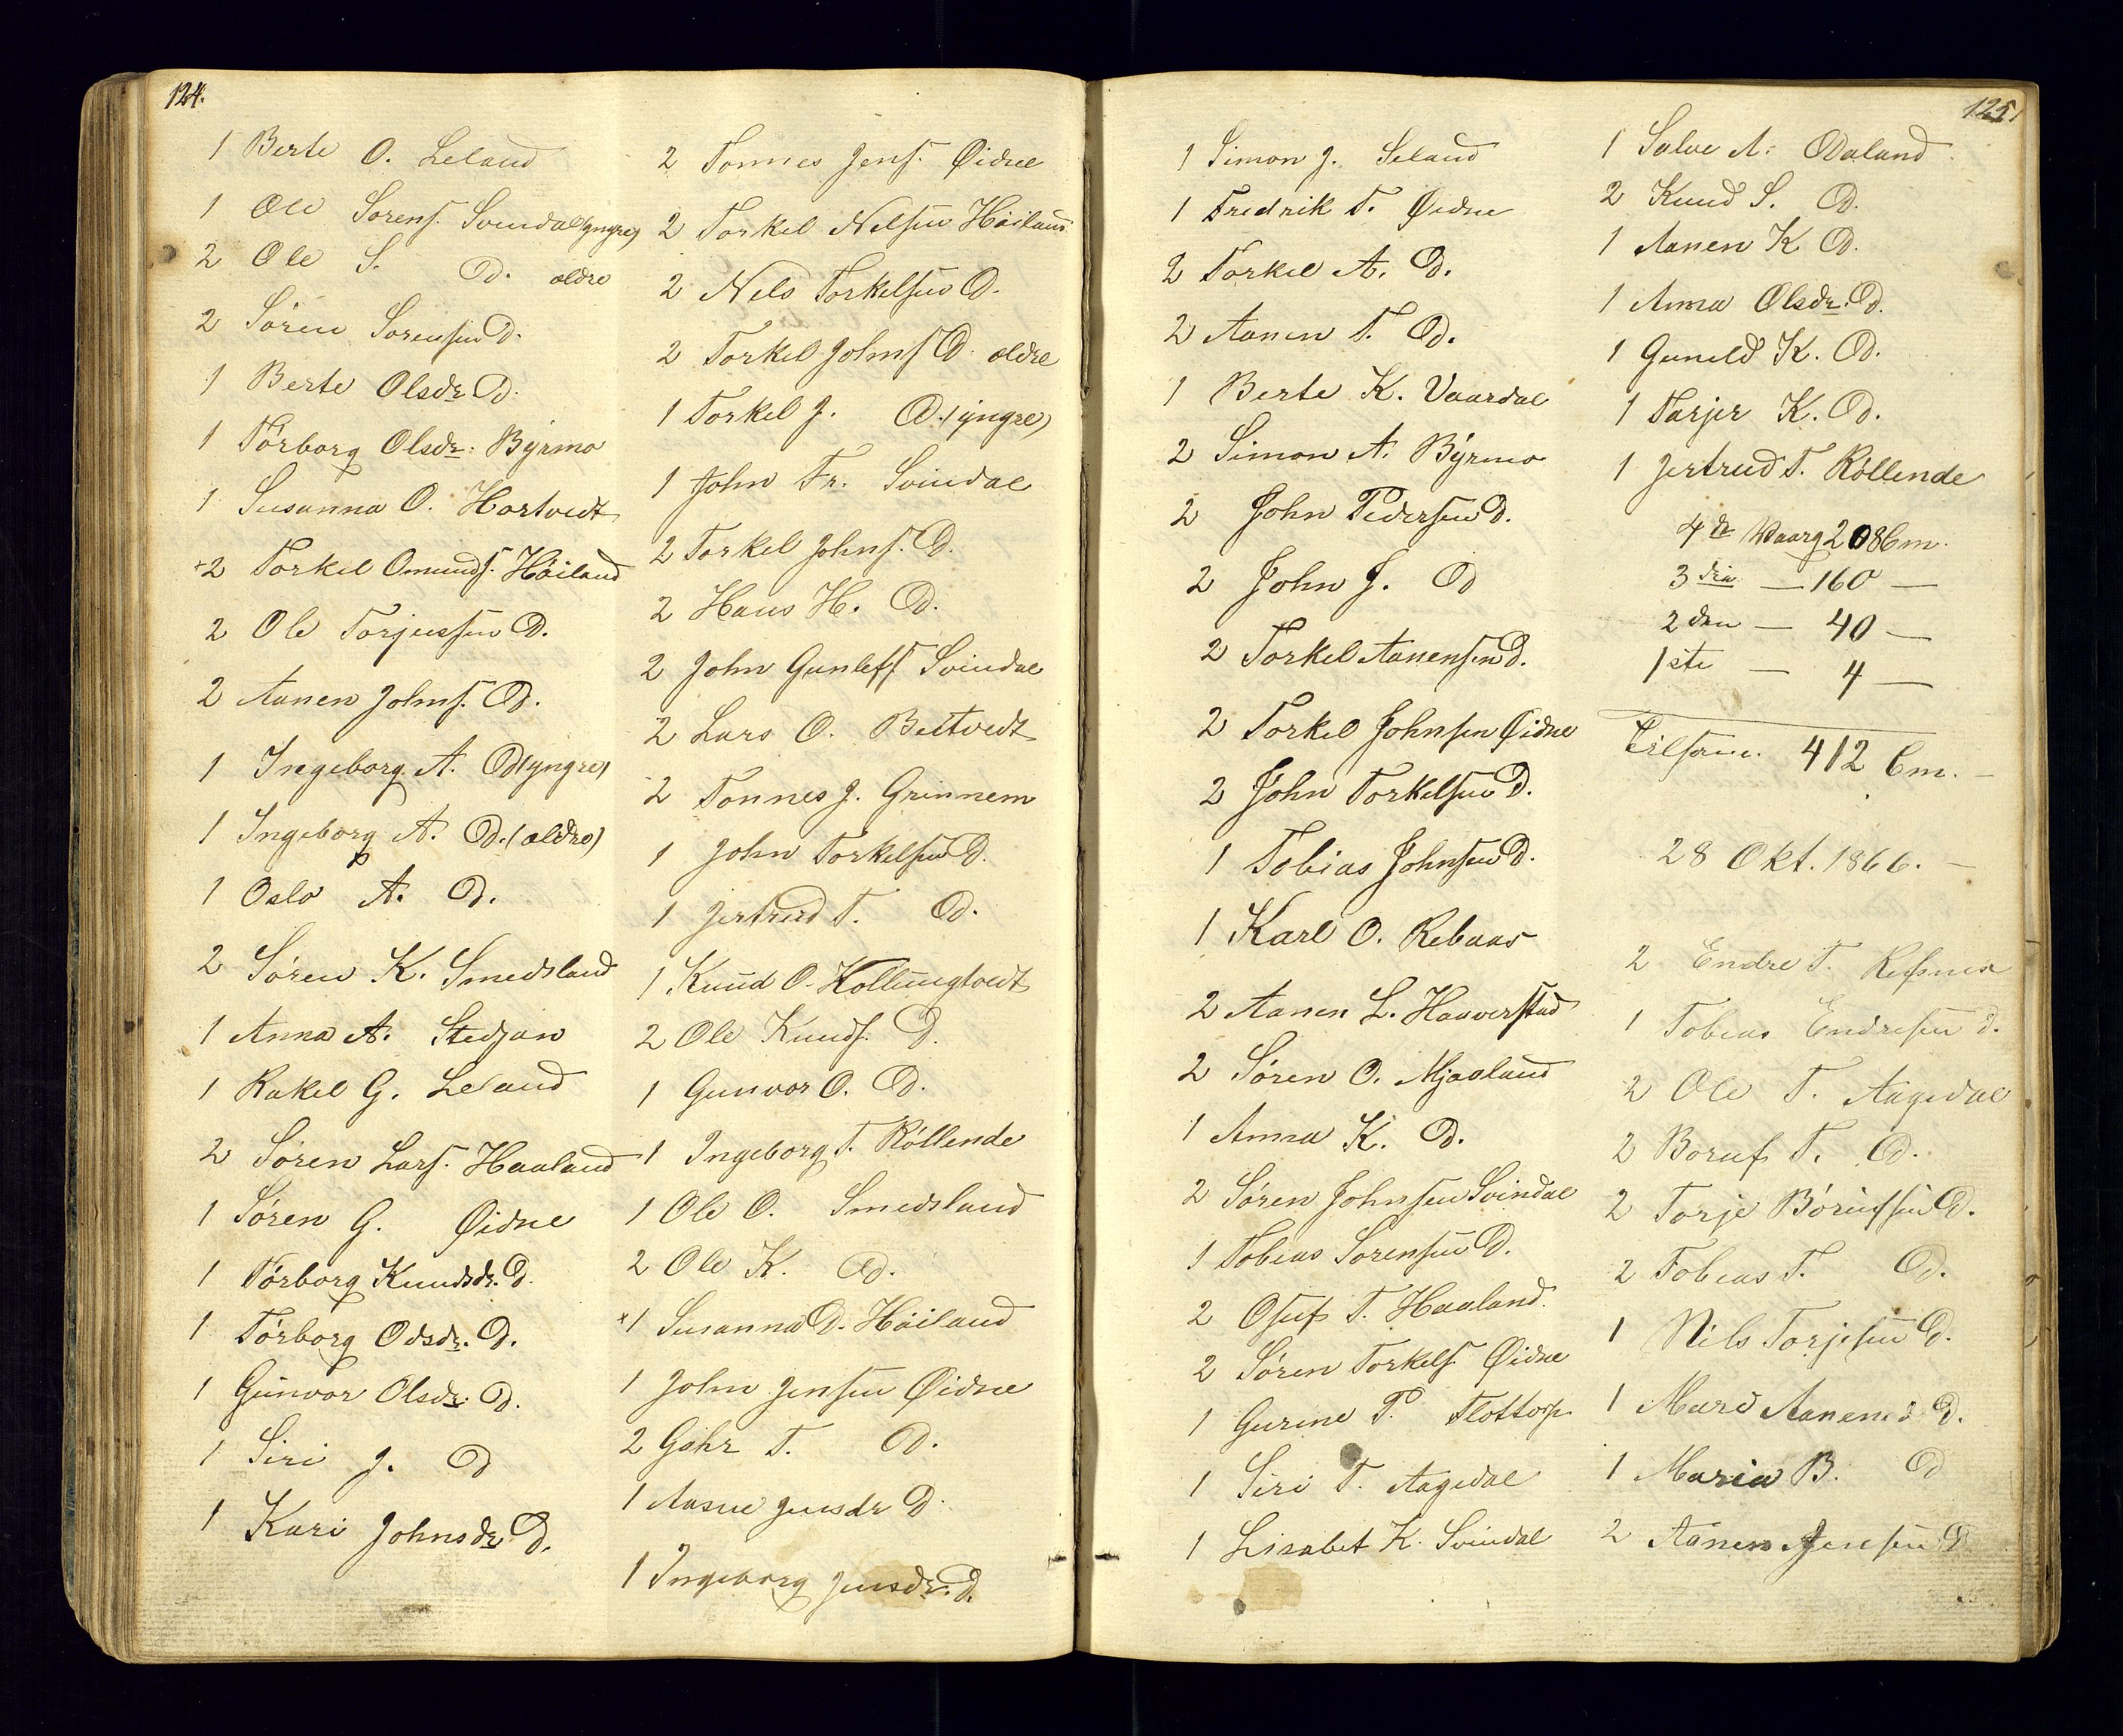 124.
1 Berte O. Leland
1 Ole Sørens. Svindal (yngre)
2 Ole S. D. ældre
2 Søren Sørensen D.
1 Berte Olsdr D.
1 Tørborg Olsdr. Byrmo
1 Susanna O. Hortvedt
+2 Torkel Omunds. Høiland
2 Ole Torjussen D.
2 Aanen Johns. D.
1 Ingeborg A. D (yngre)
1 Ingeborg A. D. (ældre)
1 Oslo A. D.
2 Søren K. Smedsland
1 Anna A. Stedjan
1 Rakel G. Leland
2 Søren Lars. Haaland
1 Søren G. Øidne
1 Tørborg Knudsdr. D.
1 Tørborg Odsdr. D.
1 Gunvor Olsdr. D.
1 Siri J. D
1 Kari Johnsdr D.
2 Tønnes Jens. Øidne
2 Torkel Nelsen Høiland
2 Nels Torkelsen D.
2 Torkel Johns D. ældre
1 Torkel J. D. (yngre)
1 John Fr. Svindal
2 Torkel Johns. D.
2 Hans H. D.
2 John Gunlefs Svindal
2 Lars O. Bettvedt
2 Tønnes J. Grinnem
1 John Torkelsen D.
1 Jertrud T. D.
1 Knud O. Kollungtvedt
2 Ole Knuds. D.
1 Gunvor O. D.
1 Ingeborg T. Røllende
1 Ole O. Smedsland
2 Ole K. D.
+1 Susanna D. Høiland
1 John Jensen Øidne
2 Gehr T. D.
1 Aasne Jensdr D.
1 Ingeborg Jensdr. D.
125
1 Simon J. Seland
1 Fredrik T. Øidne
2 Torkel A. D.
2 Aanen T. D.
1 Berte K. Vaardal
2 Simon A. Byrmo
2 John Pedersen D.
2 John J. D
2 Torkel Aanensen D.
2 Torkel Johnsen Øidne
2 John Torkelsen D.
1 Tobias Johnsen D.
1 Karl O. Rebaas
2 Aanen L. Haaverstad
2 Søren O. Mjaaland
1 Anna K. D.
2 Søren Johnsen Svindal
1 Tobias Sørensen D.
2 Osuf T. Haaland.
2 Søren Torkels. Øidne
1 Gurine P. Flottorp
1 Siri T. Aagedal
1 Lisabet K. Svindal
1 Salve A. Odaland.
2 Knud S. D.
1 Aanen K D.
1 Anna Olsdr. D.
1 Guneld K. D.
1 Tarjer K. D.
1 Jertrud T. Røllende
4de Gang 208 Em.
3die — 160 —
2den — 40 —
1ste — 4 —
Tilsam. 412 Em. —
28 Okt. 1866. —
2 Endre T.
1 Tobias Endresen D.
2 Ole T. Aagedal
2 Boruf T. D.
2 Torje Børufsen D.
2 Tobias T. D.
1 Nils Torjesen D.
1 Mari Aanensd D.
1 Maria B. D
2 Aanen Jensen D